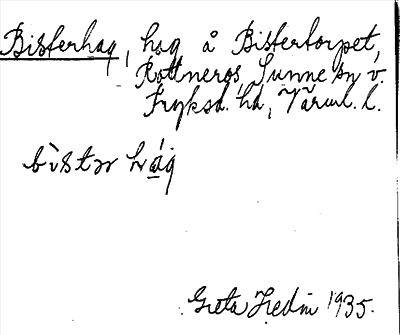 Bisterhag, hag å Bistertorpet,
Rottneros, Sunne sn v.
Fryksd. hd, Värml. l.
bìstər hág
Greta Hedin 1935.